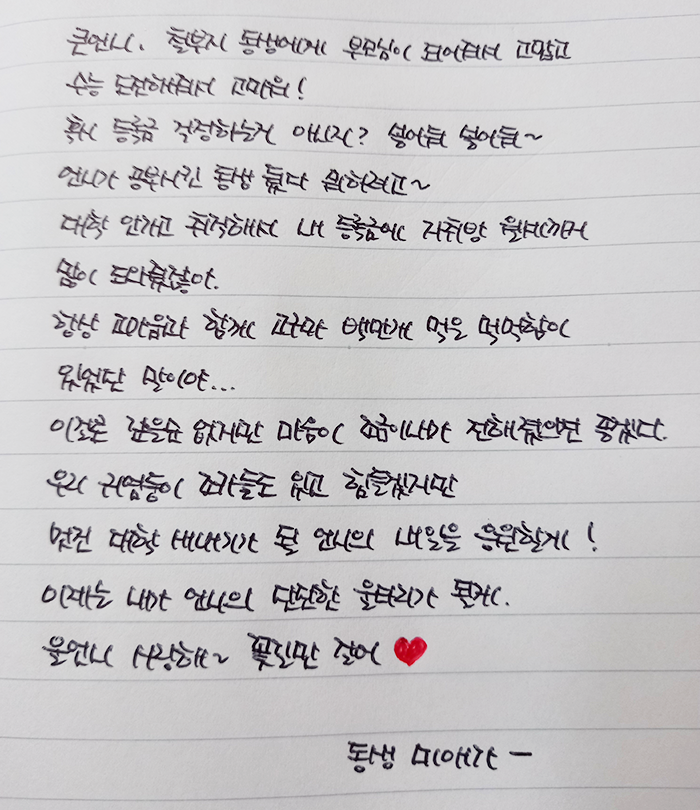 큰언니. 철부지 동생에게 부모님이 되어줘서 고맙고
수능 도전해줘서 고마워!
혹시 등록금 걱정하는거 아니지? 넣어둬 넣어둬~
언니가 공부시킨 동생 뒀다 뭐하려고~
대학 안가고 취직해서 내 등록금에 자취방 월세까지
많이 도와줬잖아.
항상 고마움과 함께 고구마 백만개 먹은 먹먹함이
있었단 말이야...
이걸론 갚을순 없지만 마음이 조금이나마 전해졌으면 좋겠다.
우리 귀염둥이 조카들도 있고 힘들겠지만
멋진 대학 새내기가 될 언니의 내일을 응원할게!
이제는 내가 언니의 단단한 울타리가 될게.
울언니 사랑해~ 꽃길만 걸어 ❤
동생 미애가 ー